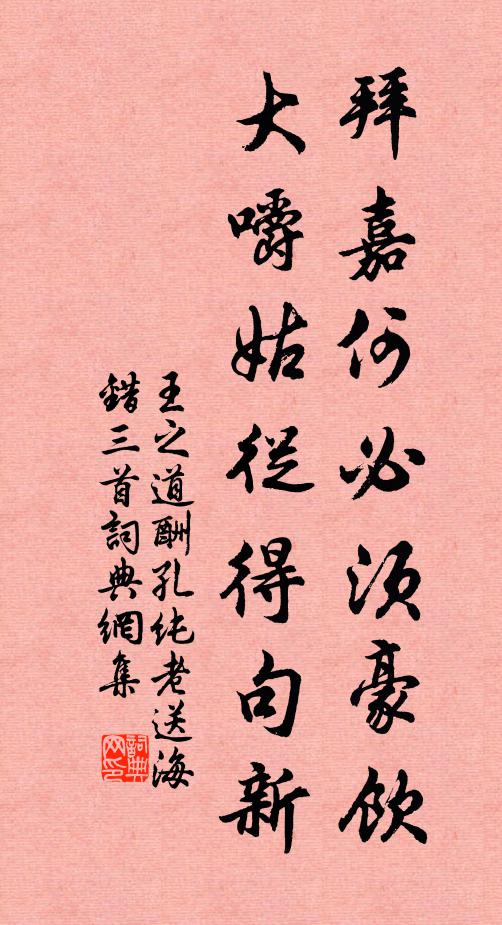 拜嘉何必須豪飲
大嚼姑從得句新
王之道酬孔純老送海
錯三首詞典網集
詞典网印